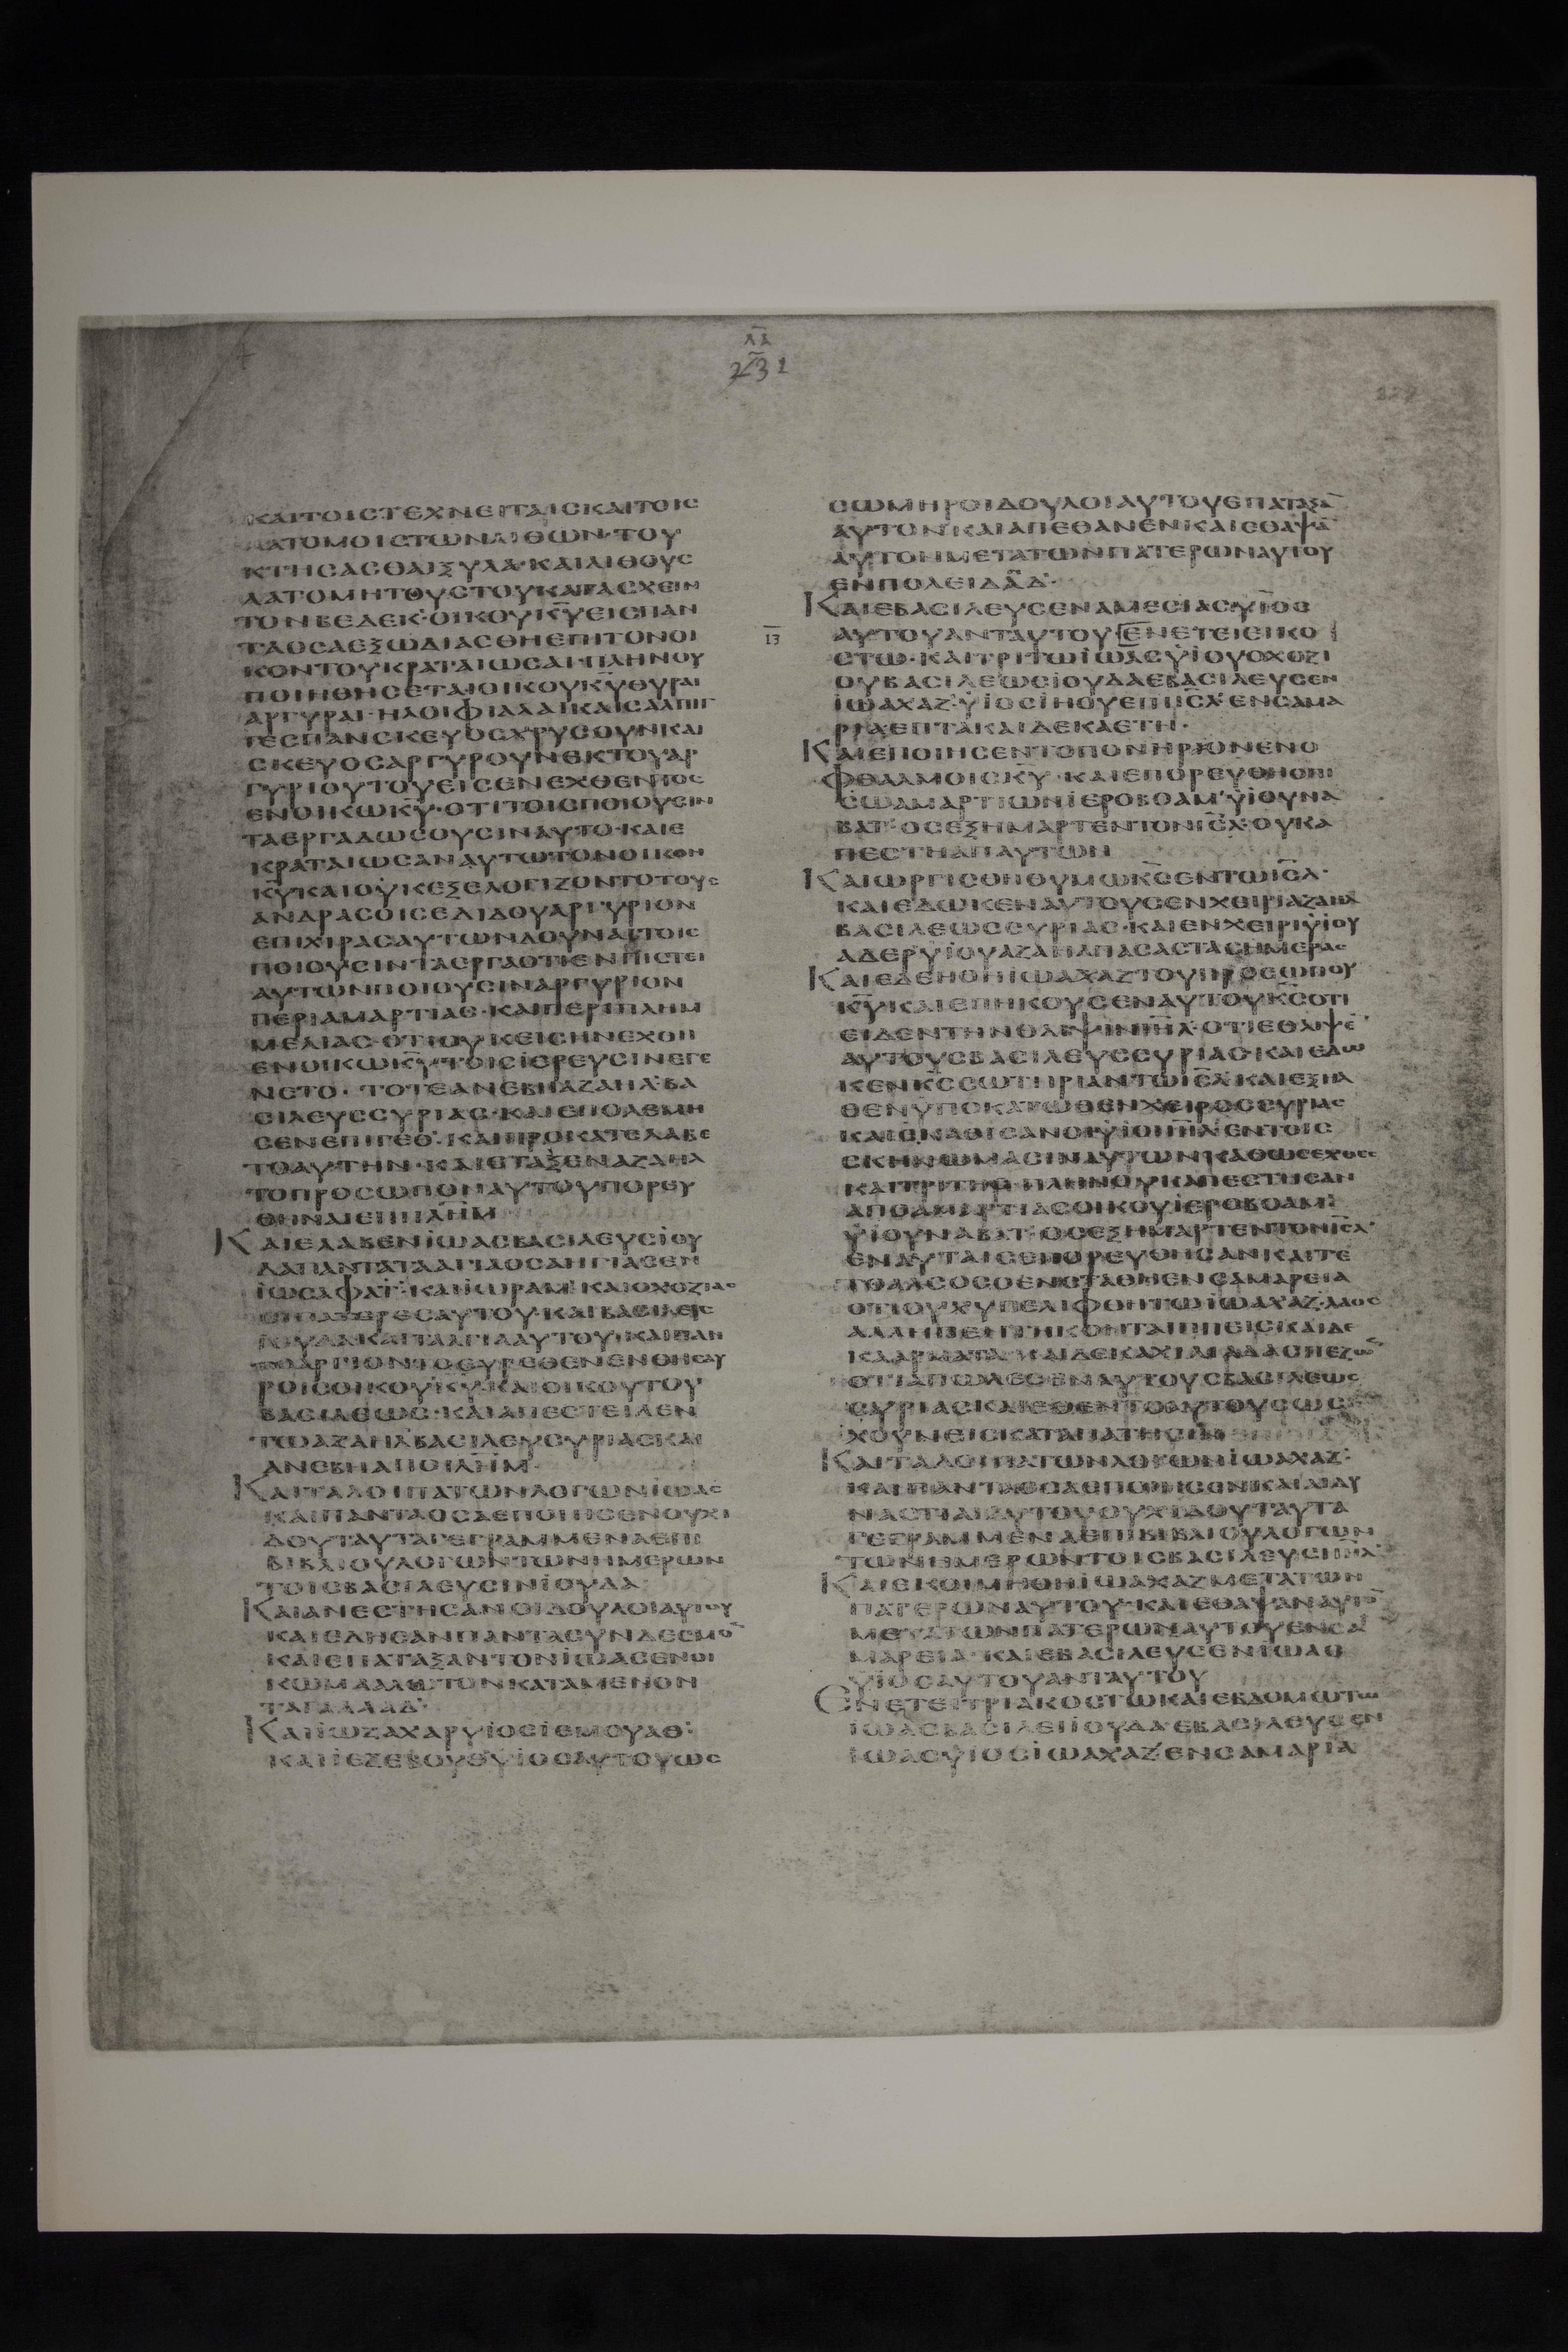 λα
231
229
ΚΑΙΤΟΙCΤΕΧΝΕΙΤΑΙCΚΑΙΤΟΙC
ΛΑΤΟΜΟΙCΤΩΝΛΙΘΩΝ·ΤΟΥ
ΚΤΗCΑCΘΑΙΞΥΛΑ·ΚΑΙΛΙΘΟΥC
ΛΑΤΟΜΗΤΟΥCΤΟΥΚΑΤΑCΧΕΙΝ
ΤΟΝΒΕΔΕΚ·ΟΙΚΟΥΚ̅Υ̅ΕΙCΠΑΝ
ΤΑΟCΑΕΞΩΔΙΑCΘΗΕΠΙΤΟΝΟΙ
ΚΟΝΤΟΥΚΡΑΤΑΙΩCΑΙ·ΠΛΗΝΟΥ
ΠΟΙΗΘΗCΕΤΑΙΟΙΚΟΥΚ̅Υ̅ΘΥΡΑΙ
ΑΡΓΥΡΑΙ·ΗΛΟΙΦΙΑΛΑΙΚΑΙCΑΛΠΙΓ
ΓΕCΠΑΝCΚΕΥΟCΧΡΥCΟΥΝΚΑΙ
CΚΕΥΟCΑΡΓΥΡΟΥΝΕΚΤΟΥΑΡ
ΓΥΡΙΟΥΤΟΥΕΙCΕΝΕΧΘΕΝΤΟC
ΕΝΟΙΚΩΚ̅Υ̅·ΟΤΙΤΟΙCΠΟΙΟΥCΙΝ
ΤΑΕΡΓΑΔΩCΟΥCΙΝΑΥΤΟ·ΚΑΙΕ
ΚΡΑΤΑΙΩCΑΝΑΥΤΩΤΟΝΟΙΚΟΝ
Κ̅Υ̅ΚΑΙΟΥΚΕΞΕΛΟΓΙΖΟΝΤΟΤΟΥC
ΑΝΔΡΑCΟΙCΕΛΙΔΟΥΑΡΓΥΡΙΟΝ
ΕΠΙΧΙΡΑCΑΥΤΩΝΔΟΥΝΑΙΤΟΙC
ΠΟΙΟΥCΙΝΤΑΕΡΓΑΟΤΙΕΝΠΙCΤΕΙ
ΑΥΤΩΝΠΟΙΟΥCΙΝΑΡΓΥΡΙΟΝ
ΠΕΡΙΑΜΑΡΤΙΑC·ΚΑΙΠΕΡΙΠΛΗΜ
ΜΕΛΙΑC·ΟΤΙΟΥΚΕΙCΗΝΕΧΘΗ
ΕΝΟΙΚΩΚ̅Υ̅·ΤΟΙCΙΕΡΕΥCΙΝΕΓΕ
ΝΕΤΟ·ΤΟΤΕΑΝΕΒΗΑΖΑΗΛ·ΒΑ
CΙΛΕΥCCΥΡΙΑC·ΚΑΙΕΠΟΛΕΜΗ
CΕΝΕΠΙΓΕΘ·ΚΑΙΠΡΟΚΑΤΕΛΑΒΕ
ΤΟΑΥΤΗΝ·ΚΑΙΕΤΑΞΕΝΑΖΑΗΛ
ΤΟΠΡΟCΩΠΟΝΑΥΤΟΥΠΟΡΕΥ
ΘΗΝΑΙΕΠΙΙ̅Λ̅Η̅Μ̅
ΚΑΙΕΛΑΒΕΝΪΩΑCΒΑCΙΛΕΥCΪΟΥ
ΔΑΠΑΝΤΑΤΑΑΓΙΑΟCΑΗΓΙΑCΕΝ
ΪΩCΑΦΑΤ·ΚΑΙΪΩΡΑΜ·ΚΑΙΟΧΟΖΙΑC
ΟΙΠΑΤΕΡΕCΑΥΤΟΥ·ΚΑΙΒΑCΙΛΕΙC
ΪΟΥΔΑΚΑΙΤΑΑΓΙΑΑΥΤΟΥ·ΚΑΙΠΑΝ
ΤΟΑΡΓΥΡΙΟΝΤΟΕΥΡΕΘΕΝΕΝΘΗCΑΥ
ΡΟΙCΟΙΚΟΥΚ̅Υ̅·ΚΑΙΟΙΚΟΥΤΟΥ
ΒΑCΙΛΕΩC·ΚΑΙΑΠΕCΤΕΙΛΕΝ
ΤΩΑΖΑΗΛΒΑCΙΛΕΥCΥΡΙΑCΚΑΙ
ΑΝΕΒΗΑΠΟΙ̅Λ̅Η̅Μ̅·
ΚΑΙΤΑΛΟΙΠΑΤΩΝΛΟΓΩΝΪΩΑC
ΚΑΙΠΑΝΤΑΟCΑΕΠΟΙΗCΕΝΟΥΧΙ
ΔΟΥΤΑΥΤΑΓΕΓΡΑΜΜΕΝΑΕΠΙ
ΒΙΒΛΙΟΥΛΟΓΩΝΤΩΝΗΜΕΡΩΝ
ΤΟΙCΒΑCΙΛΕΥCΙΝΪΟΥΔΑ
ΚΑΙΑΝΕCΤΗCΑΝΟΙΔΟΥΛΟΙΑΥΤΟΥ
ΚΑΙΕΔΗCΑΝΠΑΝΤΑCΥΝΔΕCΜΟ̅
ΚΑΙΕΠΑΤΑΞΑΝΤΟΝΪΩΑCΕΝΟΙ
ΚΩΜΑΑΛΩΤΟΝΚΑΤΑΜΕΝΟΝ
ΤΑΓΑΑΛΛΑΔ·
ΚΑΙΪΩΖΑΧΑΡΥΪΟCΪΕΜΟΥΑΘ·
ΚΑΙΪΕΖΕΒΟΥΘΫΙΟCΑΥΤΟΥΩC
CΩΜΗΡΟΙΔΟΥΛΟΙΑΥΤΟΥΕΠΑΤΑΞΑ̅
ΑΥΤΟΝ·ΚΑΙΑΠΕΘΑΝΕΝ·ΚΑΙΕΘΑΨΑ̅
ΑΥΤΟΝΜΕΤΑΤΩΝΠΑΤΕΡΩΝΑΥΤΟΥ
ΕΝΠΟΛΕΙΔ̅Α̅Δ̅·
ΚΑΙΕΒΑCΙΛΕΥCΕΝΑΜΕCΙΑCΫΙΟC
13 ΑΥΤΟΥΑΝΤΑΥΤΟΥ[ΕΝΕΤΕΙΕΙΚΟ
CΤΩ·ΚΑΙΤΡΙΤΩΪΩΑCΫΙΟΥΟΧΟΖΙ
ΟΥΒΑCΙΛΕΩCΪΟΥΔΑΕΒΑCΙΛΕΥCΕΝ
ΪΩΑΧΑΖ·ΫΙΟCΪΗΟΥΕΠΙΙ̅C̅Λ̅·ΕΝCΑΜΑ
ΡΙΑΕΠΤΑΚΑΙΔΕΚΑΕΤΗ·
ΚΑΙΕΠΟΙΗCΕΝΤΟΠΟΝΗΡΟΝΕΝΟ
ΦΘΑΛΜΟΙCΚ̅Υ̅·ΚΑΙΕΠΟΡΕΥΘΗΟΠΙ
CΩΑΜΑΡΤΙΩΝΪΕΡΟΒΟΑΜ·ΫΙΟΥΝΑ
ΒΑΤ·ΟCΕΞΗΜΑΡΤΕΝΤΟΝΙ̅C̅Λ̅·ΟΥΚΑ
ΠΕCΤΗΑΠΑΥΤΩΝ
ΚΑΙΩΡΓΙCΘΗΘΥΜΩΚ̅C̅ΕΝΤΩΙ̅C̅Λ̅·
ΚΑΙΕΔΩΚΕΝΑΥΤΟΥCΕΝΧΕΙΡΙΑΖΑΗΛ
ΒΑCΙΛΕΩCCΥΡΙΑC·ΚΑΙΕΝΧΕΙΡΙΫΙΟΥ
ΑΔΕΡΫΙΟΥΑΖΑΗΛΠΑCΑCΤΑCΗΜΕΡΑC
ΚΑΙΕΔΕΗΘΗΪΩΑΧΑΖΤΟΥΠΡΟCΩΠΟΥ
Κ̅Υ̅ΚΑΙΕΠΗΚΟΥCΕΝΑΥΤΟΥΚ̅C̅ΟΤΙ
ΕΙΔΕΝΤΗΝΘΛΙΨΙΝΙ̅Η̅Λ̅·ΟΤΙΕΘΛΙΨΕ̅
ΑΥΤΟΥCΒΑCΙΛΕΥCCΥΡΙΑC·ΚΑΙΕΔΩ
ΚΕΝΚ̅C̅CΩΤΗΡΙΑΝΤΩΙ̅C̅Λ̅·ΚΑΙΕΞΗΛ
ΘΕΝΫΠΟΚΑΤΩΘΕΝΧΕΙΡΟCCΥΡΙΑC
ΚΑΙΕΚΑΘΙCΑΝΟΙΫΙΟΙΙ̅Η̅Λ̅ΕΝΤΟΙC
CΚΗΝΩΜΑCΙΝΑΥΤΩΝΚΑΘΩCΕΧΘΕC
ΚΑΙΤΡΙΤΗC·ΠΛΗΝΟΥΚΑΠΕCΤΗCΑΝ
ΑΠΟΑΜΑΡΤΙΑCΟΙΚΟΥΪΕΡΟΒΟΑΜ·
ΫΙΟΥΝΑΒΑΤ·ΟCΕΞΗΜΑΡΤΕΝΤΟΝΙ̅C̅Λ̅·
ΕΝΑΥΤΑΙCΕΠΟΡΕΥΘΗCΑΝΚΑΙΓΕ
ΤΟΑΛCΟCΕCΤΑΘΗΕΝCΑΜΑΡΕΙΑ
ΟΤΙΟΥΧΥΠΕΛΙΦΘΗΤΩΪΩΑΧΑΖ·ΛΑΟC
ΑΛΛΗΠΕΝΤΗΚΟΝΤΑΙΠΠΕΙCΚΑΙΔΕ
ΚΑΑΡΜΑΤΑ·ΚΑΙΔΕΚΑΧΙΛΙΑΔΑCΠΕΖΩ̅
ΟΤΙΑΠΩΛΕCΕΝΑΥΤΟΥCΒΑCΙΛΕΩC
CΥΡΙΑCΚΑΙΕΘΕΝΤΟΑΥΤΟΥCΩC
ΧΟΥΝΕΙCΚΑΤΑΠΑΤΗCΙΝ
ΚΑΙΤΑΛΟΙΠΑΤΩΝΛΟΓΩΝΪΩΑΧΑΖ·
ΚΑΙΠΑΝΤΑΟCΑΕΠΟΙΗCΕΝΚΑΙΑΙΔΥ
ΝΑCΤΙΑΙΑΥΤΟΥΟΥΧΙΔΟΥΤΑΥΤΑ
ΓΕΓΡΑΜΜΕΝΑΕΠΙΒΙΒΛΙΟΥΛΟΓΩΝ
ΤΩΝΗΜΕΡΩΝΤΟΙCΒΑCΙΛΕΥCΙΙ̅Η̅Λ̅
ΚΑΙΕΚΟΙΜΗΘΗΪΩΑΧΑΖΜΕΤΑΤΩΝ
ΠΑΤΕΡΩΝΑΥΤΟΥ·ΚΑΙΕΘΑΨΑΝΑΥΤΟ̅
ΜΕΤΑΤΩΝΠΑΤΕΡΩΝΑΥΤΟΥΕΝCΑ
ΜΑΡΕΙΑ·ΚΑΙΕΒΑCΙΛΕΥCΕΝΪΩΑC
ΫΙΟCΑΥΤΟΥΑΝΤΑΥΤΟΥ
ΕΝΕΤΕΙΤΡΙΑΚΟCΤΩΚΑΙΕΒΔΟΜΩΤΩ
ΪΩΑCΒΑCΙΛΕΙΪΟΥΔΑ·ΕΒΑCΙΛΕΥCΕΝ
ΪΩΑCΫΙΟCΪΩΑΧΑΖ·ΕΝCΑΜΑΡΙΑ